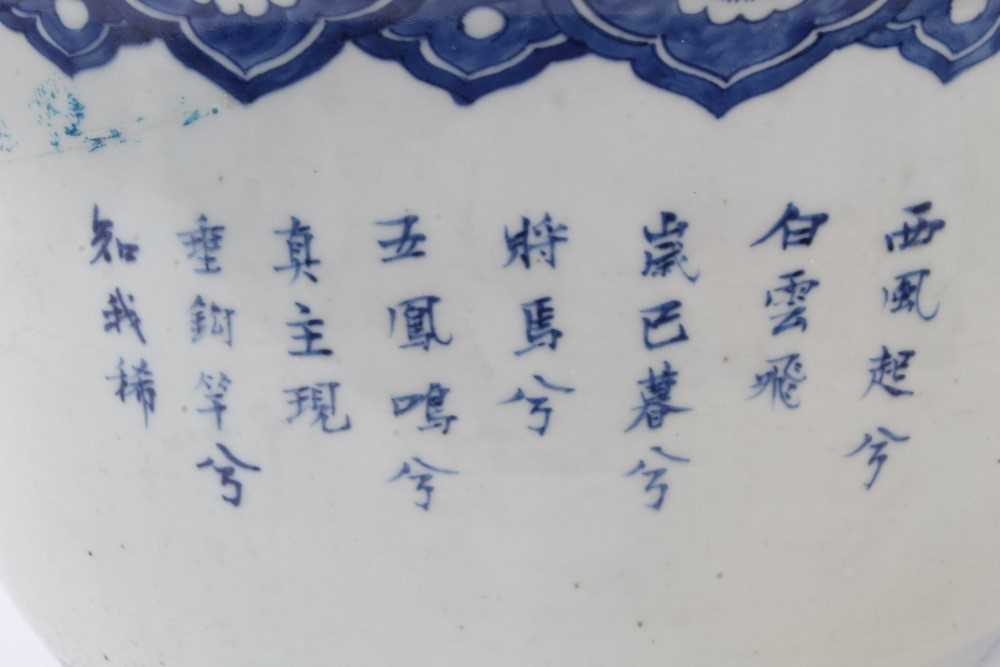 西風起兮
白雲飛
歲已暮兮
將焉兮
五鳳鳴兮
真主現
垂鈎竿兮
知我稀